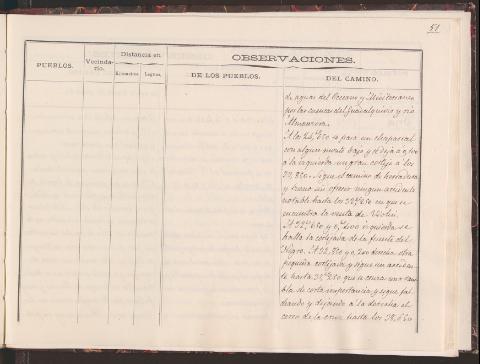 51
PUEBLOS.
Vecinda-
rio.
Distancia en
Kilómetros
Leguas.
OBSERVACIONES.
DE LOS PUEBLOS.
DEL CAMINO.
de aguas del Oceano y Mediterraneo
por las cuencas del Guadalquivir y rio
Almanzora.
A los 24, 650 se pasa un chaparral
con algun monte bajo y se deja a
a la izquierda un gran cortijo a los
850. Sigue el camino de herradura
y tramo sin ofrecer ningun accidente
notable hasta los 32, 650 en que se
encuentra la venta de
A 32, 650 y 0, 200 izquierda se
halla la cortijada de la fuente del
Negro. A 32, 850 y 0, 200 derecha otra
pequeña cortijada y sigue sin acciden-
te hasta que se cruza una ram-
bla de corta importancia y sigue fal-
deando y dejando a la derecha el
cerro de la cruz hasta los 38, 650